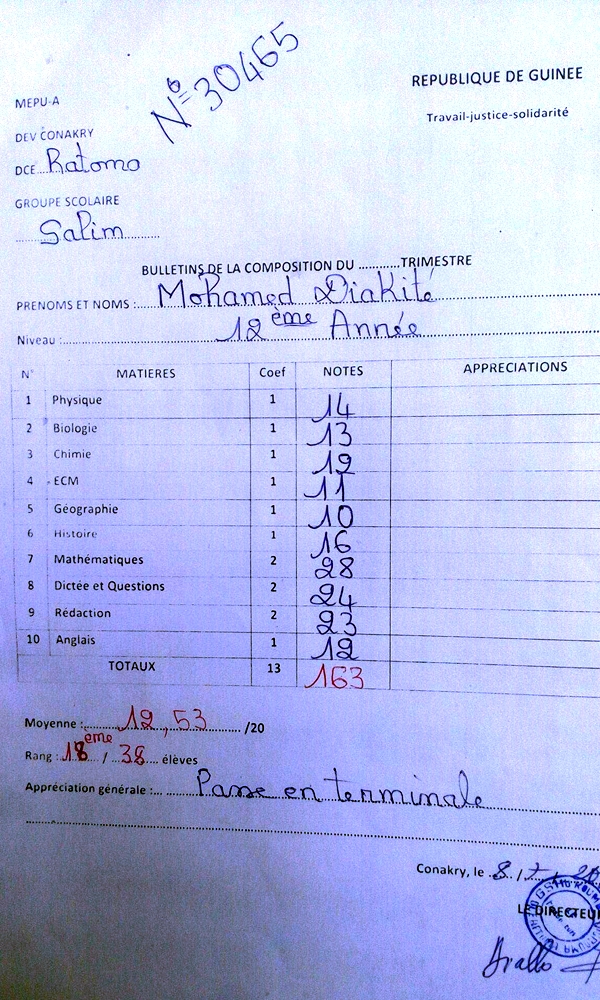 N° 30465
REPUBLIQUE DE GUINEE
MEPU-A
Travail-justice-solidarité
DEV CONAKRY
DCE....Ratoma
GROUPE SCOLAIRE
Salim
BULLETINS DE LA COMPOSITION DU ............TRIMESTRE
PRENOMS ET NOMS :....Mohamed Diakité
Niveau :....12 ème Année
N° MATIERES Coef NOTES APPRECIATIONS
1 Physique 1 14
2 Biologie 1 13
3 Chimie 1 12
4 ECM 1 11
5 Géographie 1 10
6 Histoire 1 16
7 Mathématiques 2 28
8 Dictée et Questions 2 24
9 Rédaction 2 23
10 Anglais 1 12
TOTAUX 13 163
Moyenne :....12,53..../20
Rang :18ème / 38 élèves
Appréciation générale :....Passe en terminale
Conakry, le ..8../..7../
LE DIRECTEUR
Diallo